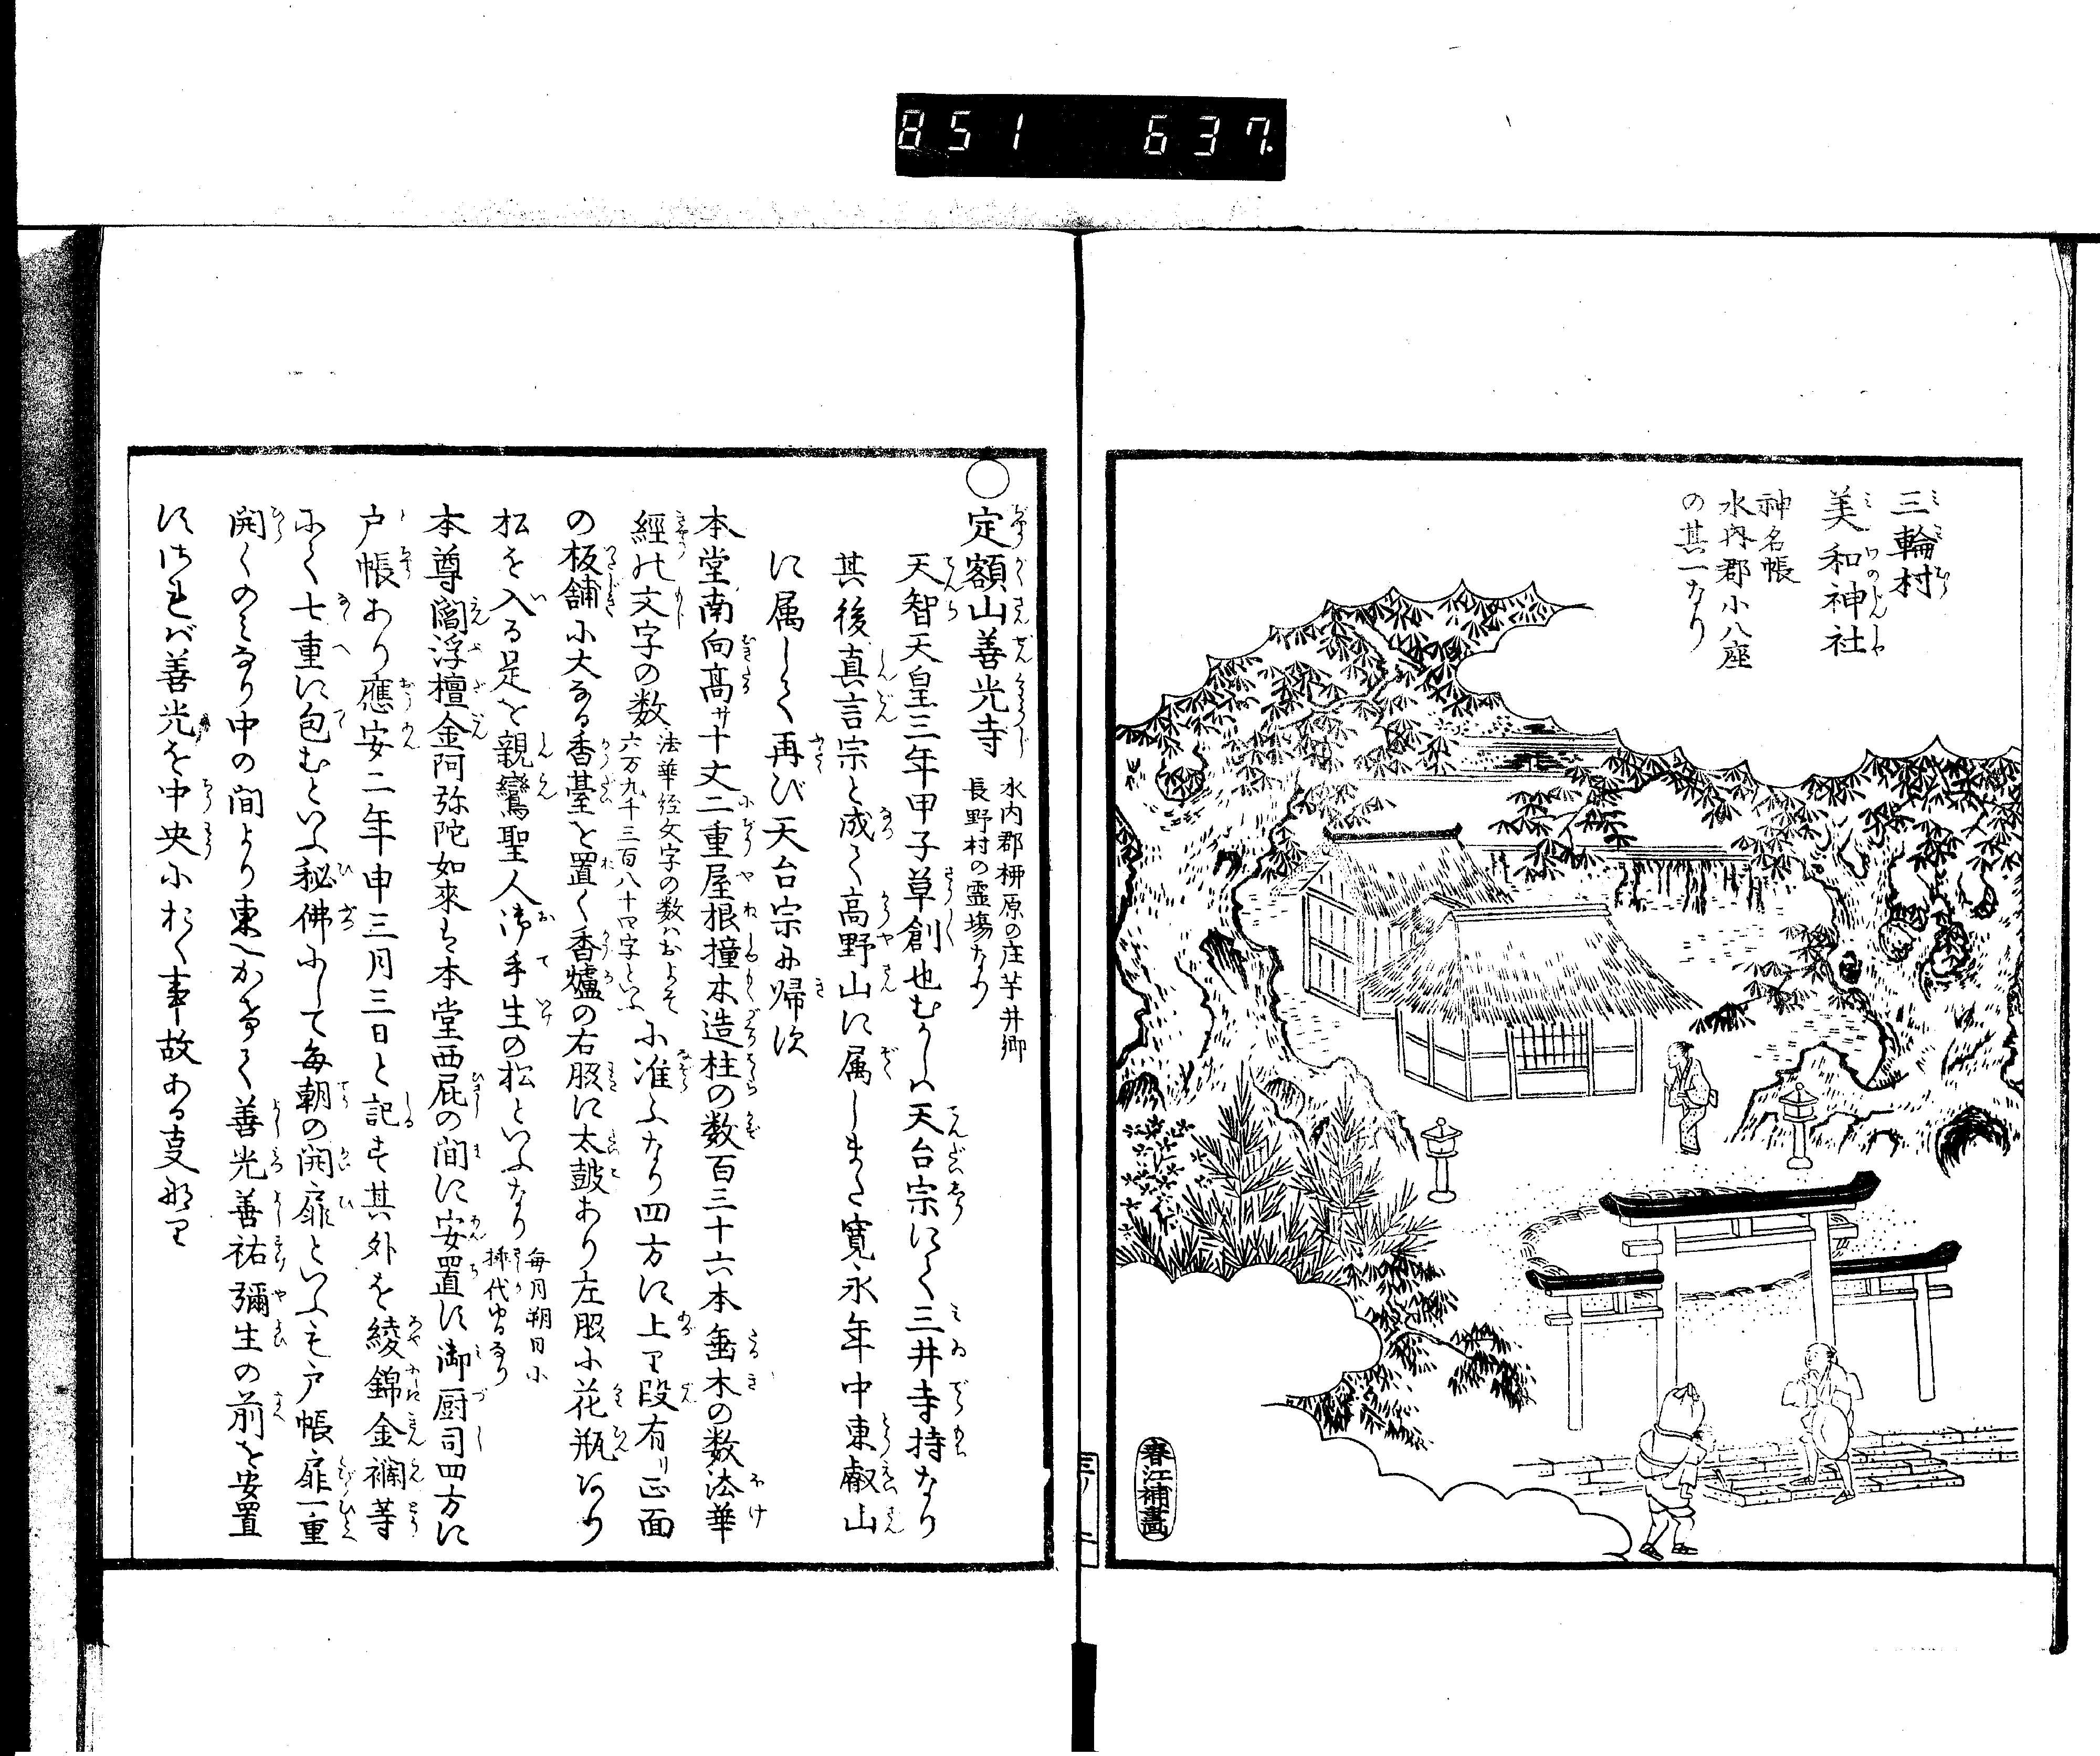 851 637.
三輪村
美和神社
神名帳
水内郡小八座
の其一なり
春江補畫
○定額山善光寺 水内郡柳原の庄芋井郷
長野村の霊場なり
天智天皇三年甲子草創也むかしハ天台宗にて三井寺持なり
其後真言宗と成て高野山に属しまた寛永年中東叡山
に属して再び天台宗に帰す
本堂南向高サ十丈二重屋根撞木造柱の数百三十六本垂木の数法華
經の文字の数 法華経文字の数ハおよそ
六万九千三百八十四字といふ に准ふなり四方に上り段有リ正面
の板舗に大なる香臺を置く香爐の右脇に太皷あり左脇に花瓶あり
松を入る是を親鸞聖人御手生の松といふなり 毎月朔日に
挿代ゆるなり
本尊閻浮檀金阿弥陀如來は本堂西庇の間に安置す御厨司四方に
戸帳あり應安二年申三月三日と記す其外を綾錦金襴等
にて七重に包むといふ秘佛にして毎朝の開扉といふも戸帳扉一重
開くのみなり中の間より東へかけて善光善祐彌生の前を安置
すされば善光を中央におく事故ある事なり